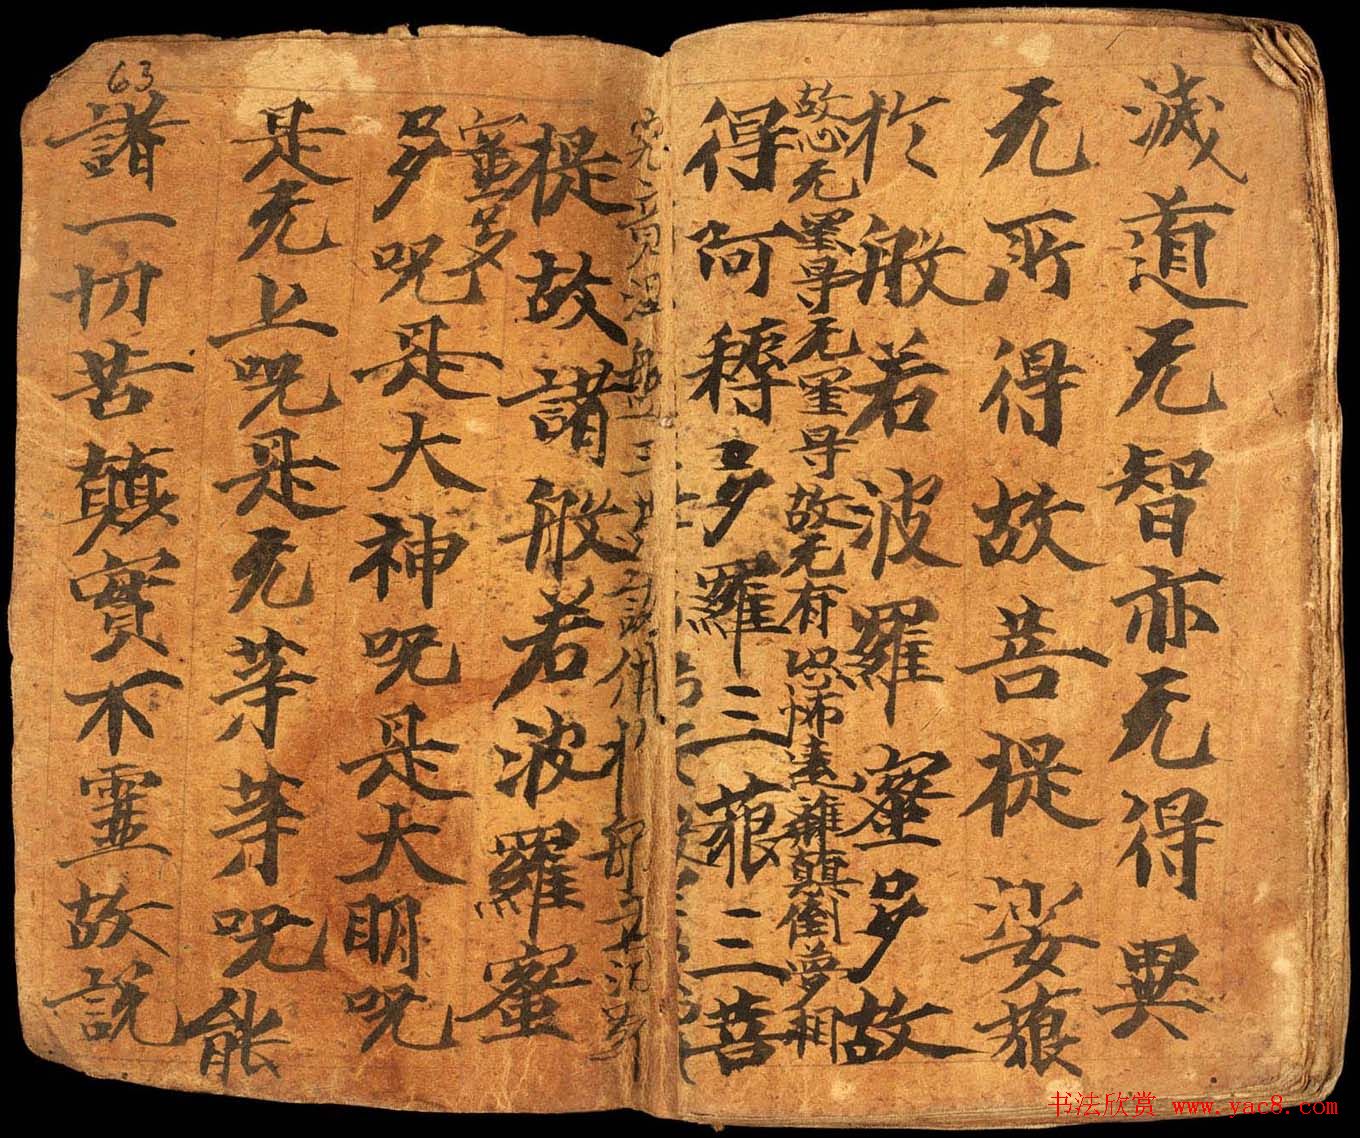 滅道无智亦无得異
无所得故菩提娑
於般若波羅蜜多故
故心无罣㝵无罣㝵故无有恐怖遠離顛倒夢相
得阿耨多羅三藐三菩
究竟涅槃三世諸佛依般若波羅
提故諸般若波羅蜜
蜜多
多呪是大神呪是大明呪
是无上呪是无等等呪能
諸一切苦顛實不虛故說
63
书法欣赏 www.yac8.com